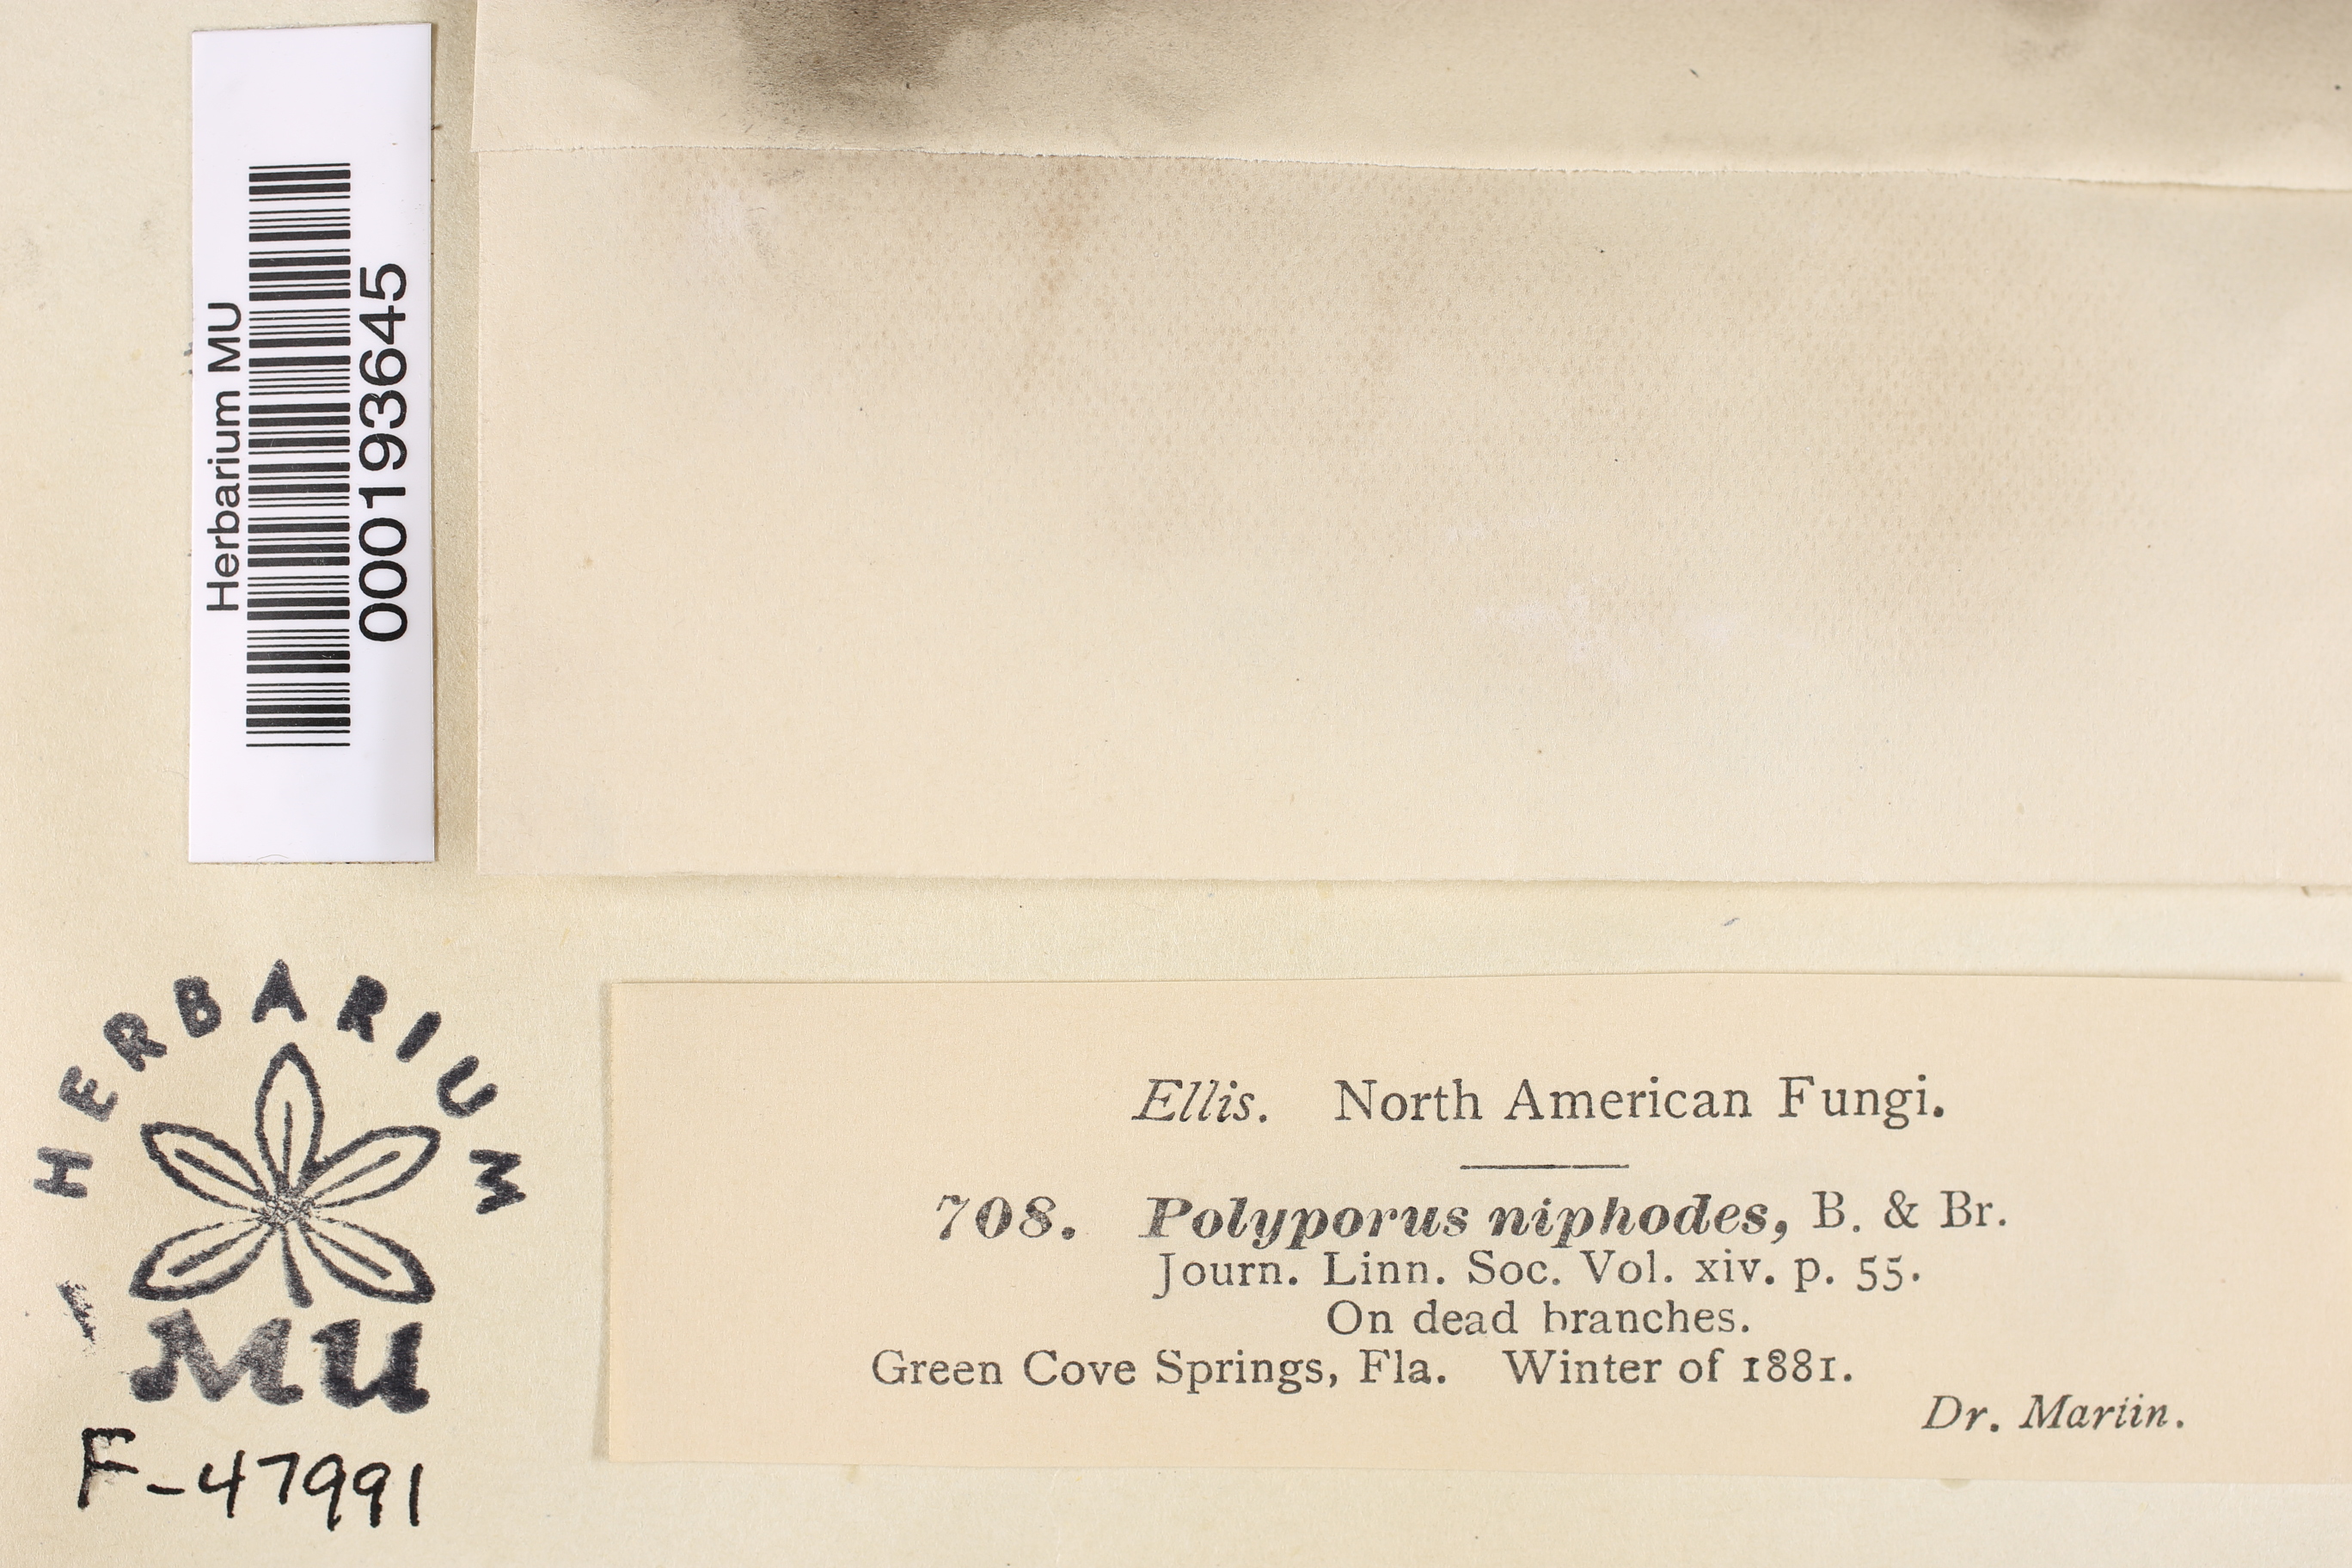 Herbarium MU
000193645
HERBARIUM
MU
F-47991
Ellis. North American Fungi.
708. Polyporus niphodes, B. & Br.
Journ. Linn. Soc. Vol. xiv. p. 55.
On dead branches.
Green Cove Springs, Fla. Winter of 1881.
Dr. Martin.